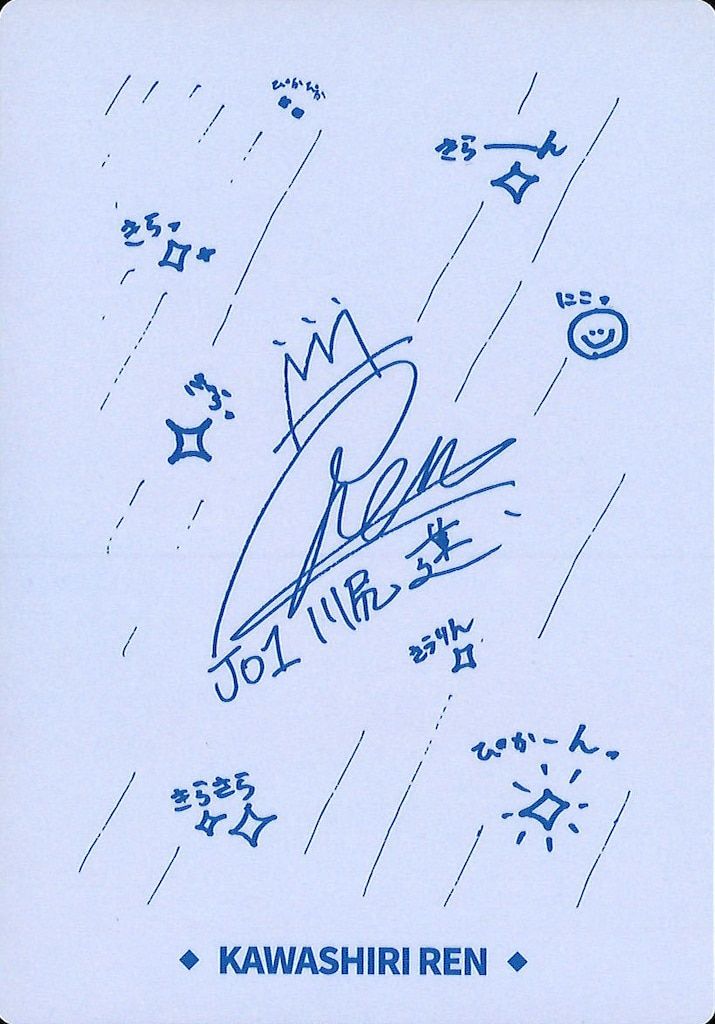 ぴかぴか
きらーん
きらっ
にこっ
Ren
JO1 川尻 蓮
きらりん
ぴかーん。
きらきら
KAWASHIRI REN